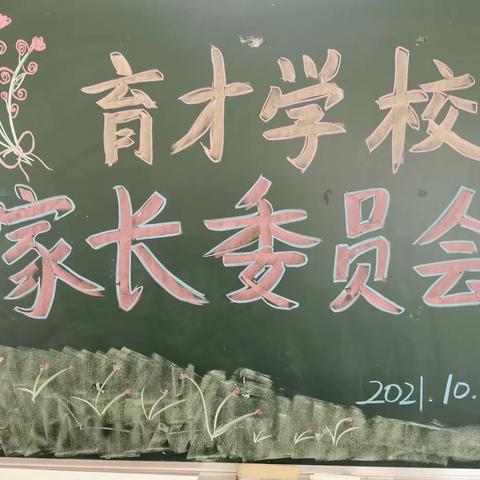 育才学校
家长委员会
2021.10.